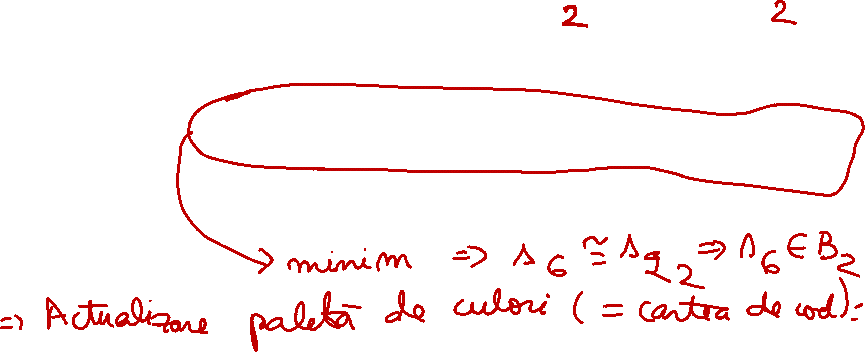 2 2
minim => s₆ ≅ s_q₂ => s₆ ∈ B₂
=> Actualizare paletă de culori (= cartea de cod):